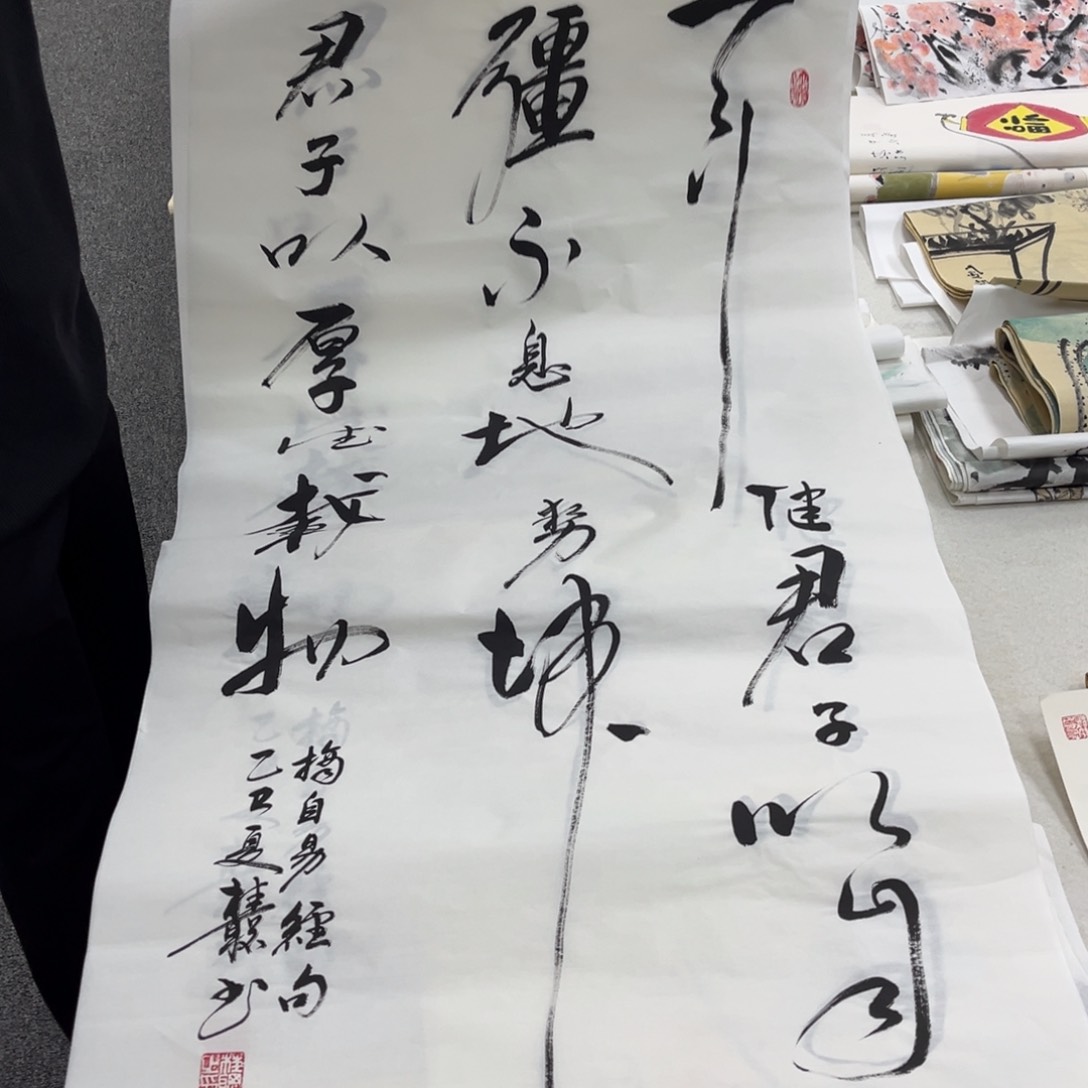 天行健君子以自
彊不息地勢坤
君子以厚德載物
摘自易經句
乙巳夏书
福